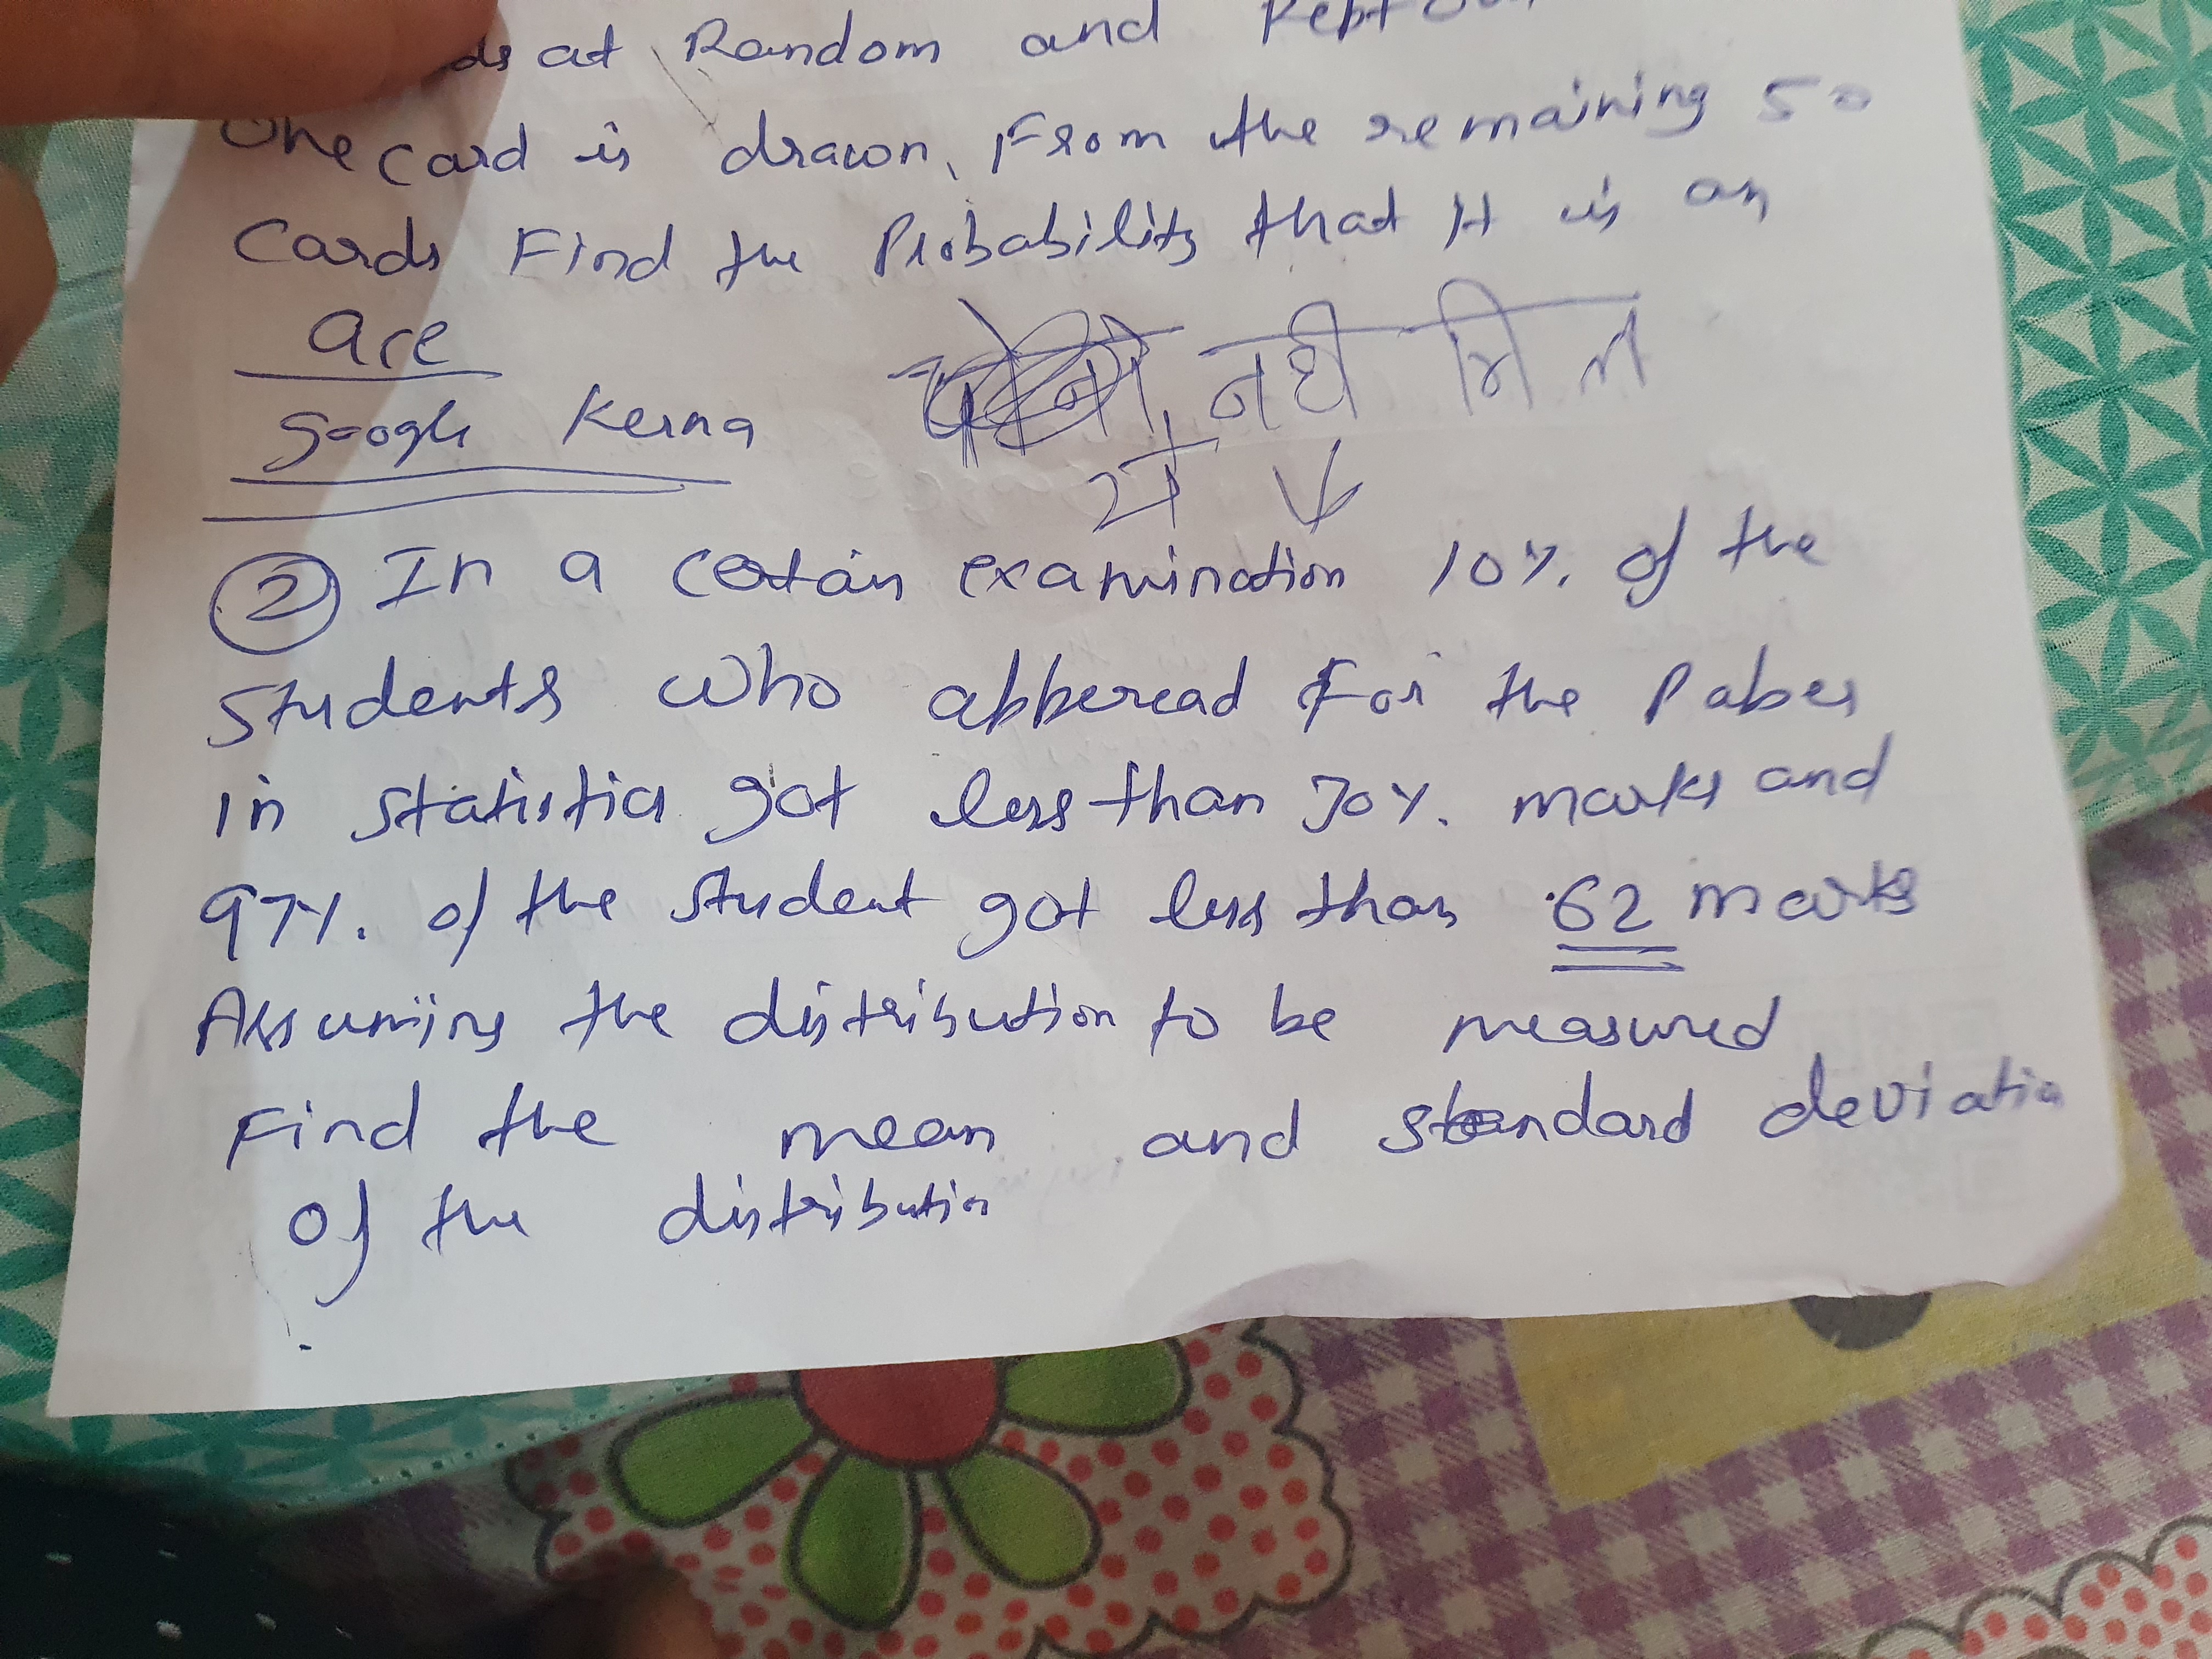 at Random and kept
One card is drawn, From the remaining 50
Cards Find the Probability that It is an
ace
google kerna
② In a cotain examination 10% of the
Students who abberead For the Paber
in statistia got less than 30% marks and
97% of the student got less than 62 marks
Assuming the distribution to be measured
Find the mean and standard deviatin
of the distributin